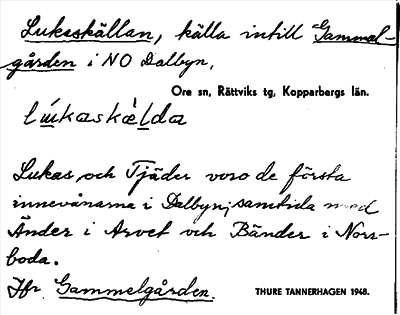 Lukaskällan, källa intill Gammal-
gården i NO Dalbyn,
Ore sn, Rättviks tg, Kopparbergs län.
lúkaskèlda
Lukas och Tjäder voro de första
innevånarna i Dalbyn; samtida med
Änder i Arvet och Bänder i Nors-
boda.
Jfr Gammelgården.
THURE TANNERHAGEN 1948.